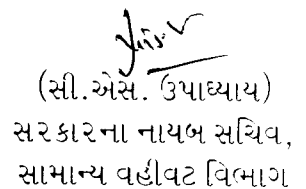 (સી.એસ. ઉપાધ્યાય)
સરકારના નાયબ સચિવ,
સામાન્ય વહીવટ વિભાગ